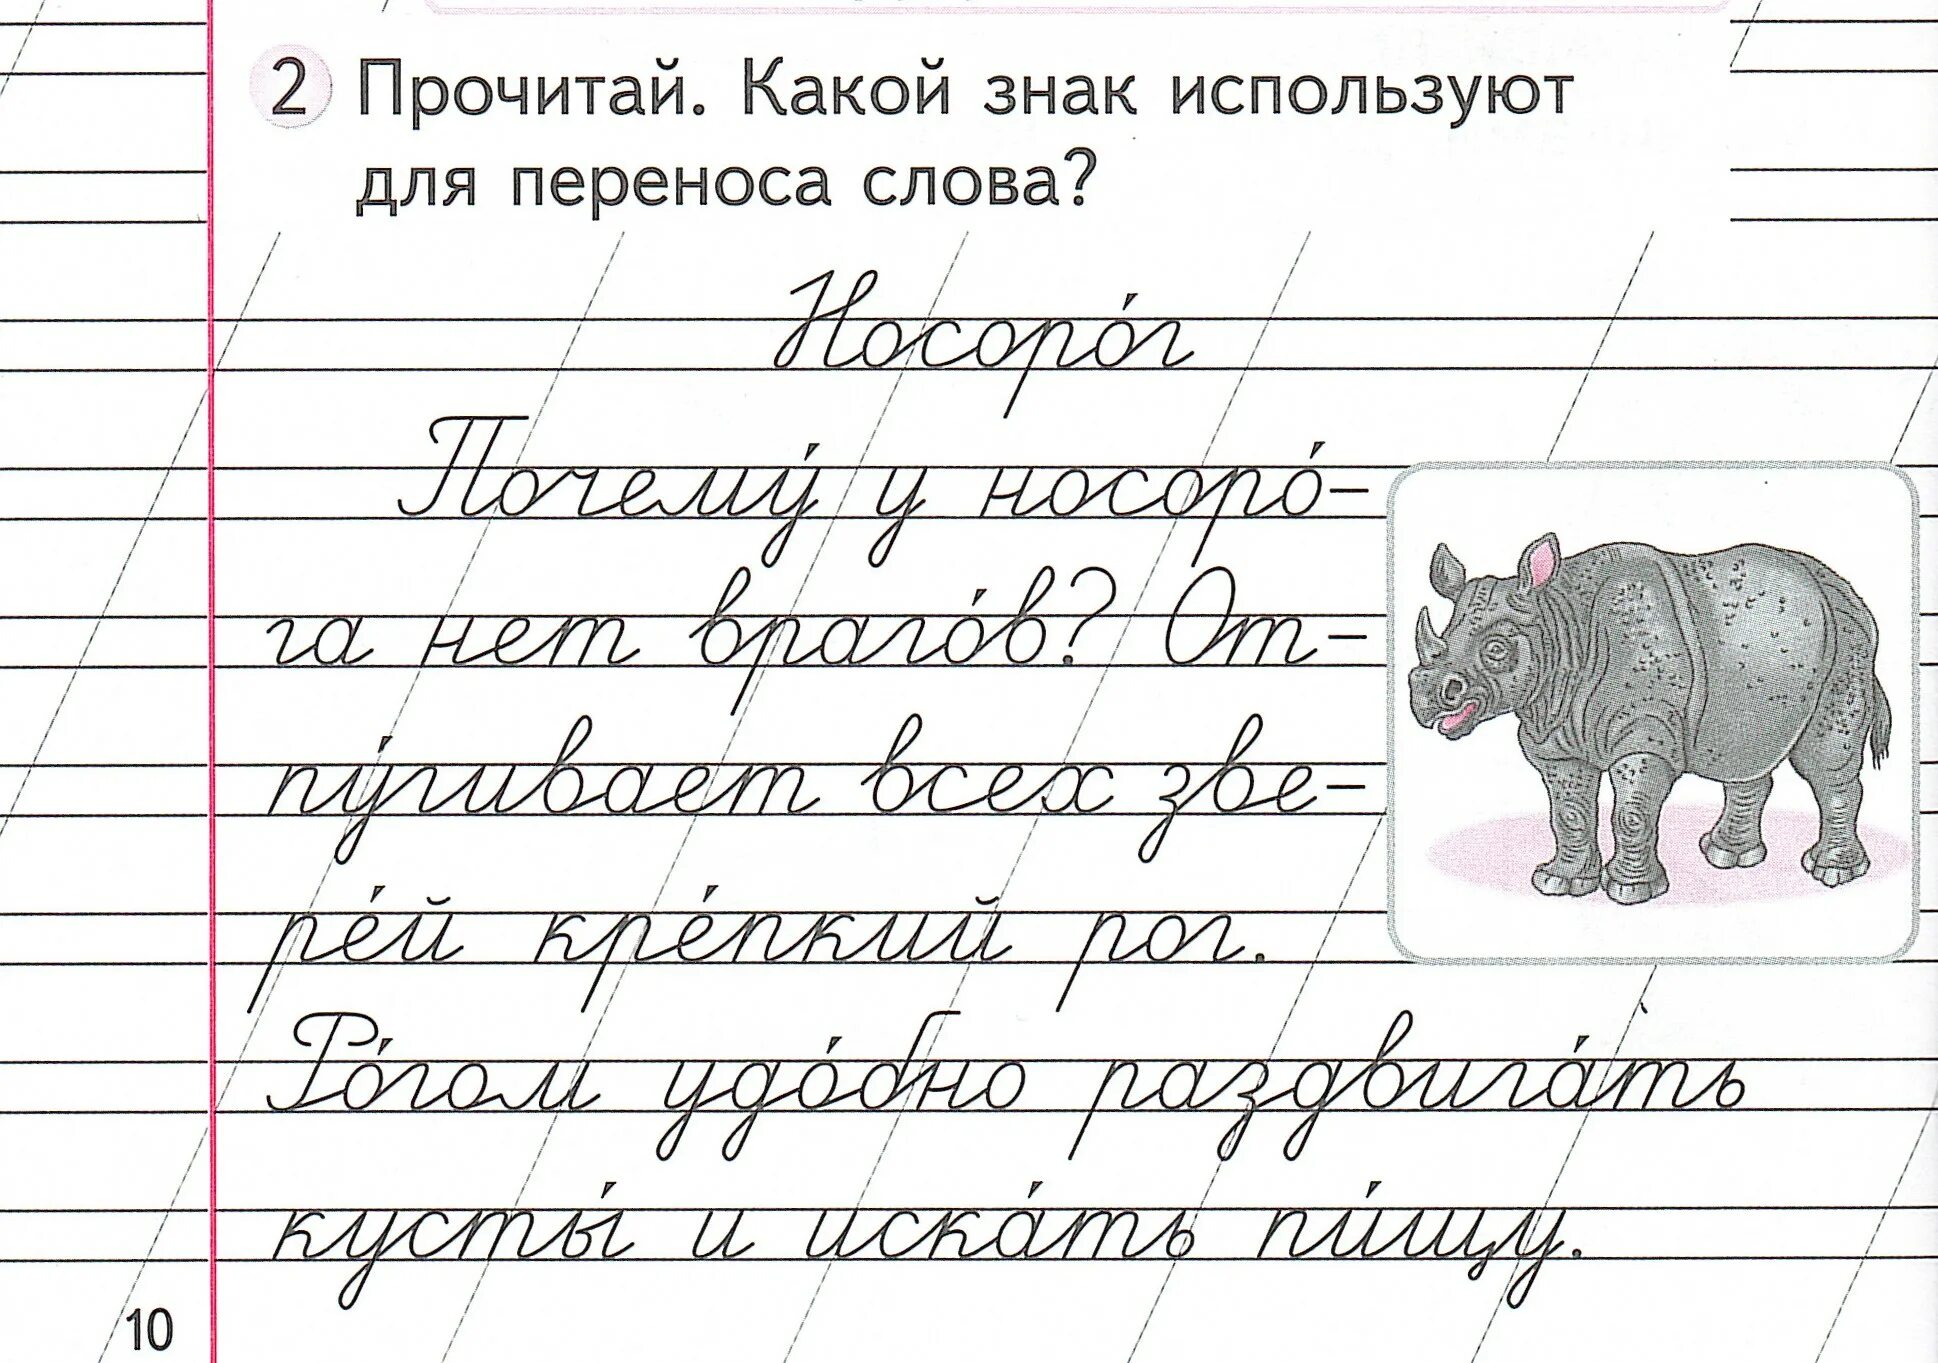 2 Прочитай. Какой знак используют
для переноса слова?
Носоро́г
Почему́ у носоро́-
га нет враго́в? От-
пу́гивает всех зве-
ре́й кре́пкий рог.
Ро́гом удо́бно раздвига́ть
кусты́ и иска́ть пи́щу.
10